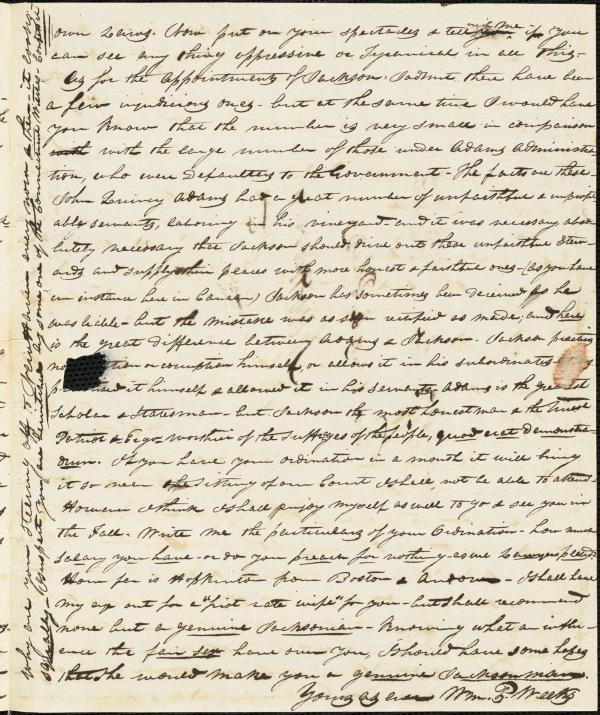 own Laws. Now put on your spectacles & tell me if you
can see any thing oppressive or Tyranical in all this-
As for the appointments of Jackson: I admit there have been
a few injudicious ones- but at the same time I would have
you know that the number is very small in comparison
with with the large number of those under Adams administra-
tion, who were defaulters to the Government- The facts are these-
John Quincy Adams had a great number of unfaithful & unprofit
able servants, laboring in his vineyard- and it was necessary abso-
lutely necessary that Jackson should drive out these unfaithful stew-
ards and supply their places with more honest & faithful ones- (as you have
an instance here in Canaan) Jackson has sometimes been deceived as he
was liable- but the mistake was as soon rectified as made; and here
is the great difference between Adams & Jackson. Jackson practices
no or corruption himself, or allows it in his subordinates-
it himself & allowed it in his servants Adams is the greatest
Scholar & Statesman- but Jackson the most honest man & the truest
Patriot & Ergo- worthier of the suffrages of the people, quod erat demonstra-
dum. If you have your ordination in a month it will bring
it so near the sitting of our Court I shall, not be able to attend-
However I think I shall enjoy myself as well to go & see you in
the Fall. Write me the particulars of your Ordination- how much
salary you have- or do you preach for noth
How far is Hopkinton from Boston & Andover- I shall have
my eye out for a "first rate wife" for you- but shall recommend
none but a genuine Jacksonian- Knowing what a influ-
ence the fair sex have over you, I should have some hopes
that she would make you a genuine Jacksonman.
Yours as ever Wm. P. Weeks
who are you steering off to